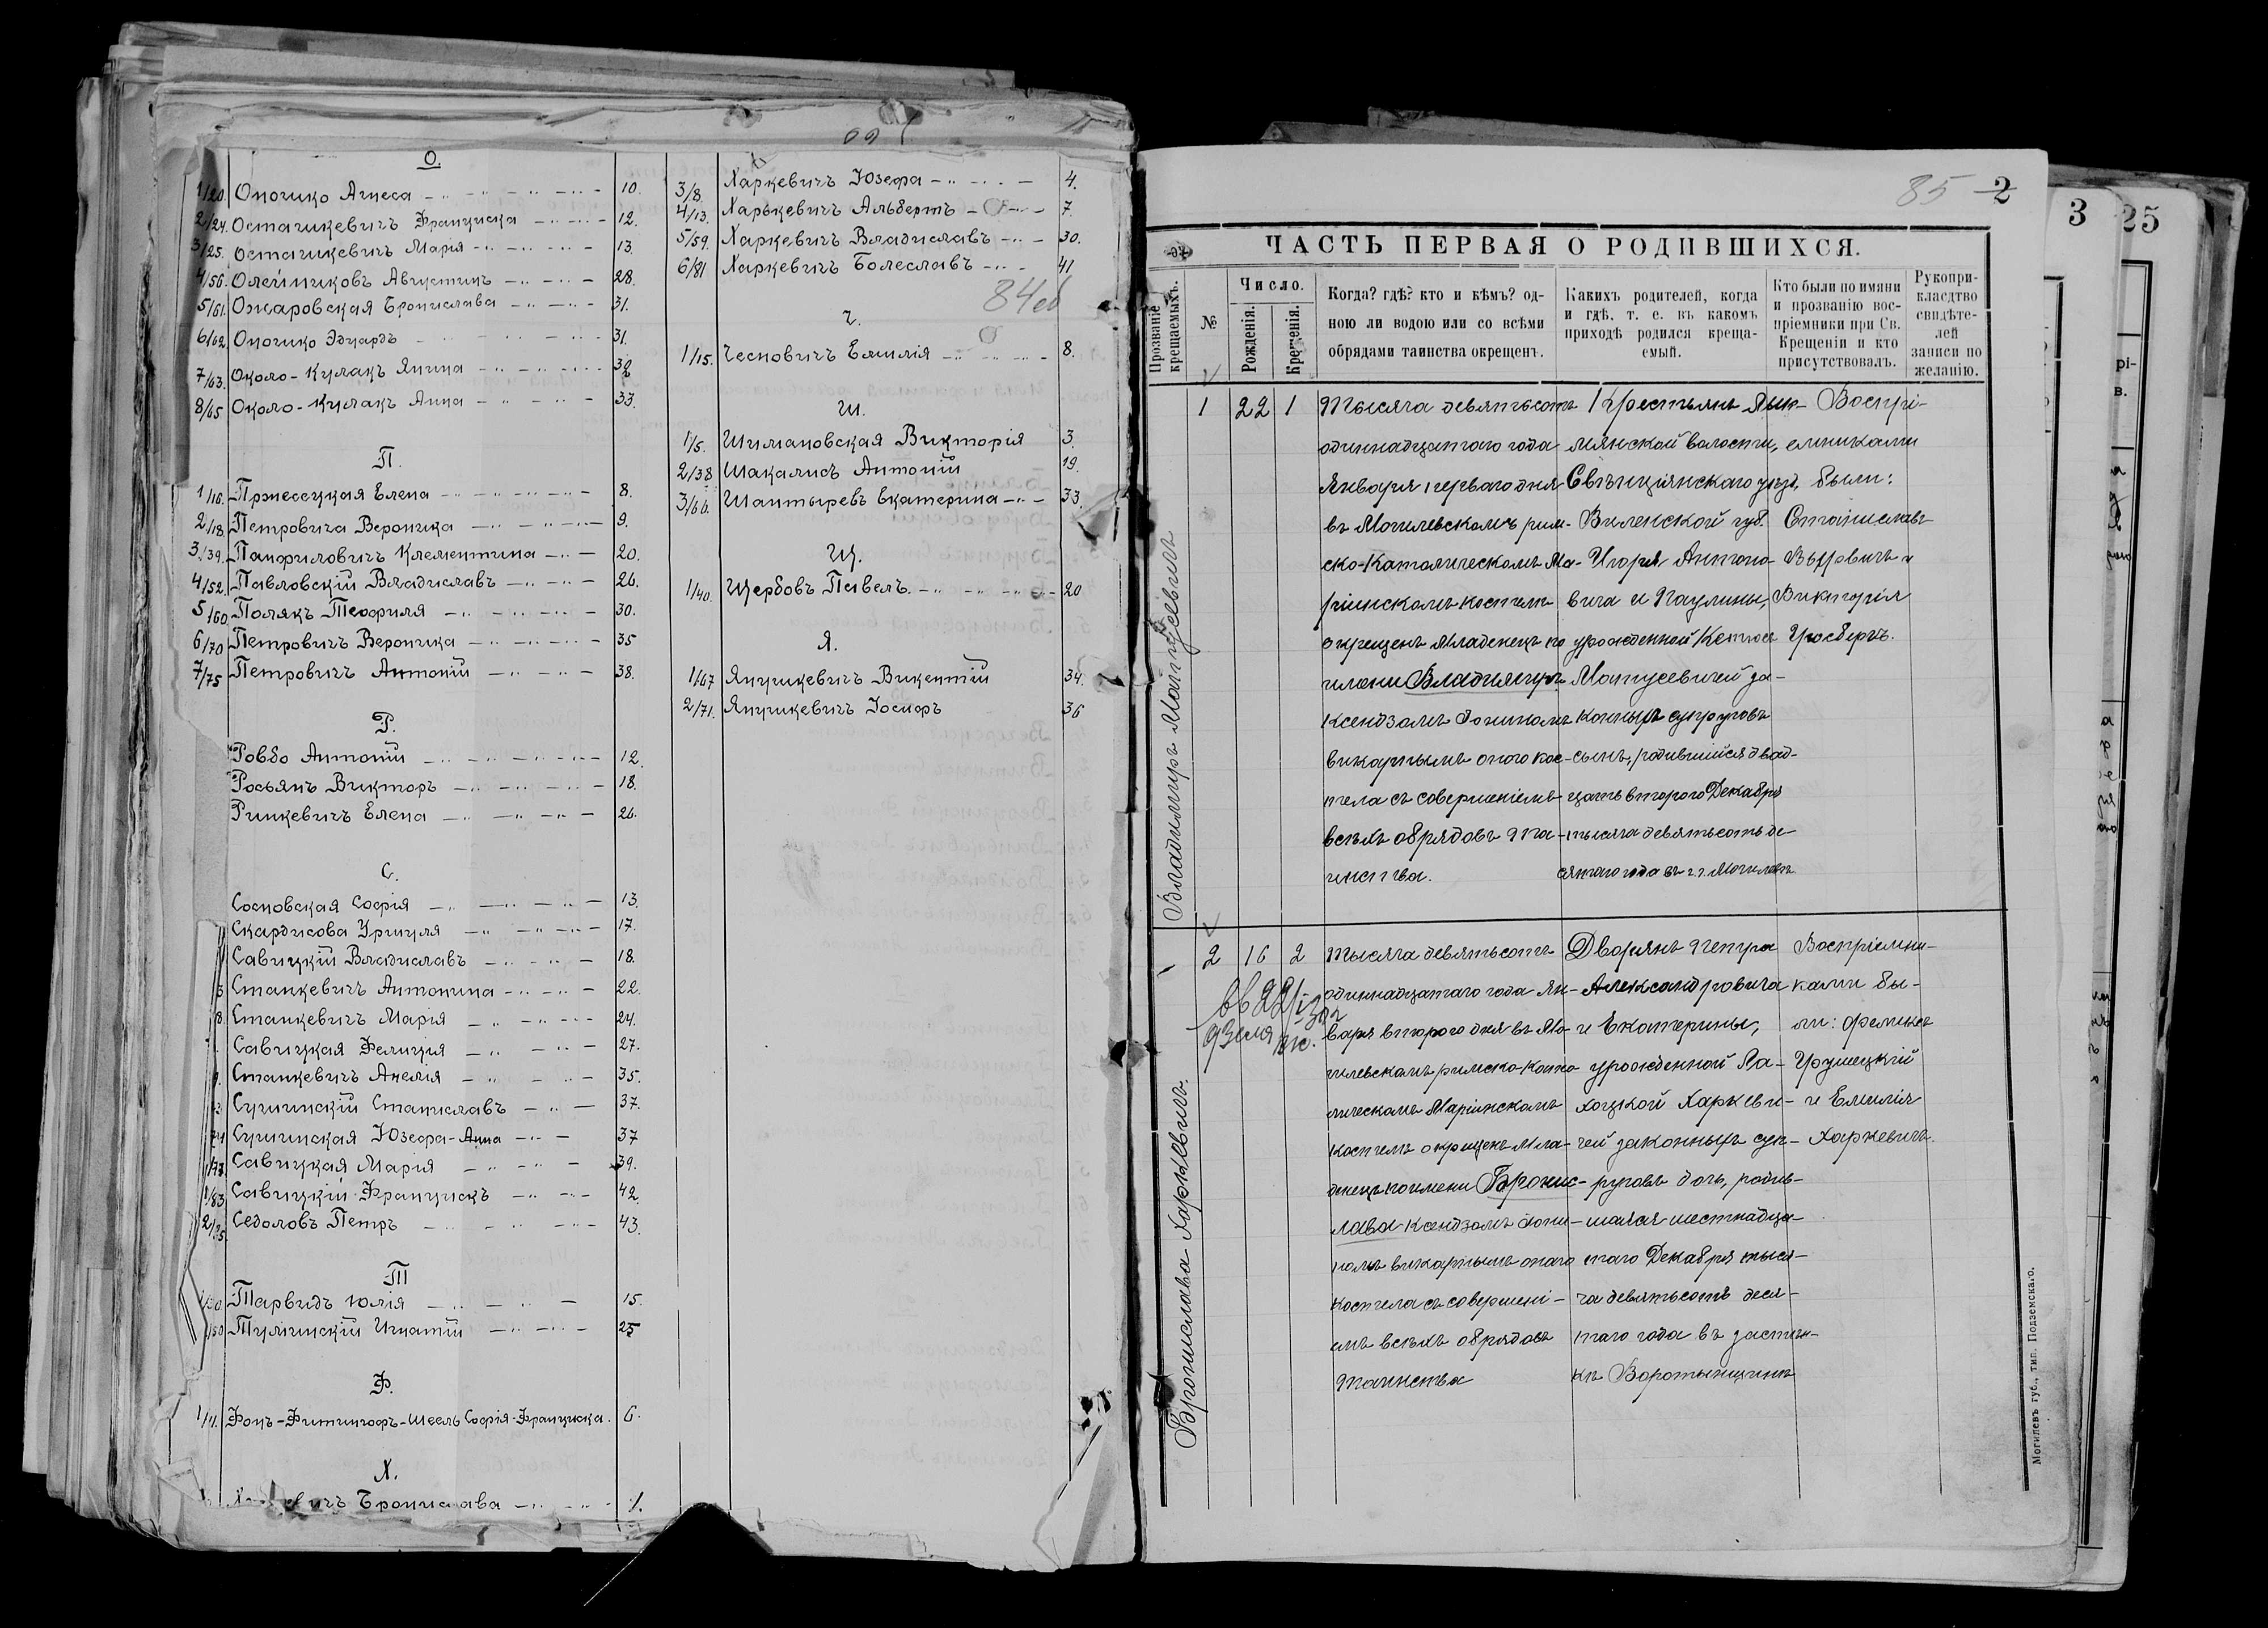 О.
1/20. Опочико Агнеса 10.
2/24. Осташкевичъ Франциска 12.
3/25. Осташкевичъ Марія 13.
4/56. Олейниковъ Августинъ 28.
5/61. Ожаровская Брониславa 31.
6/62. Опочико Эдуардъ 31.
7/63. Около-Кулакъ Янина 32
8/65 Около-Кулакъ Анна 33.
П.
1/16. Пржесецкая Елена 8.
2/18. Петровича Вероника 9.
3/39. Панфиловичъ Клементина 20.
4/52. Павловскій Владиславъ 26.
5/60. Полякъ Теофиля 30.
6/70 Петровичъ Вероника 35
7/75 Петровичъ Антоній 38.
Р.
Ровбо Антоній 12.
Росьянъ Викторъ 18.
Ринкевичъ Елена 26.
С.
Сосновская Софія 13.
Скардисова Уршуля 17.
Савицкій Владиславъ 18.
Станкевичъ Антонина 22.
Станкевичъ Марія 24.
Савицкая Фелиція 27.
Станкевичъ Анелія 35.
Сушинскій Станиславъ 37.
Сушинская Юзефа-Анна 37
Савицкая Марія 39.
1/83 Савицкій Францискъ 42
Седоловъ Петръ 43.
Т
Тарвидъ Юлія 15.
Тумчискій Игнатій 25
Ф.
Фонъ-Фитингофъ-Шеель Софія-Франциска. 6.
Х.
Бронислава 1.
3/8. Харкевичъ Юзефа 4.
4/13. Харькевичъ Альбертъ 7.
5/59. Харкевичъ Владиславъ 30.
6/81 Харкевичъ Болеславъ 41
84об
Ч.
1/15. Чесновичъ Емилія 8.
Ш.
1/5. Шимановская Викторія 3.
2/38 Шакалисъ Антоній 19.
3/66. Шантыревъ Екатерина 33.
Щ.
1/40. Щербовъ Павелъ 20
Я.
1/67 Янушкевичъ Викентій 34.
2/71. Янушкевичъ Іосифъ 36
85 2
3
25
ЧАСТЬ ПЕРВАЯ О РОДИВШИХСЯ.
Прозваніе крещаемыхъ.
№
Число.
Рожденія.
Крещенія.
Когда? гдѣ? кто и кѣмъ? од-
ною ли водою или со всѣми
обрядами таинства окрещенъ.
Какихъ родителей, когда
и гдѣ, т. е. въ какомъ
приходѣ родился креща-
емый.
Кто были по имяни
и прозванію вос-
пріемники при Св.
Крещеніи и кто
присутствовалъ.
Рукопри-
класдтво
свидѣте-
лей
записи по
желанію.
Владиміръ Матусевичъ
1 22 1
Тысяча девятьсотъ
одиннадцатаго года
Января перваго дня
въ Могилевскомъ рим-
ско-Католическомъ Ма-
ріинскомъ костелѣ
окрещенъ младенецъ по
имени Владиміръ
ксендзомъ
викарнымъ онаго кос-
тела съ совершеніемъ
всѣхъ обрядовъ та-
инства.
Крестьянъ
мянской волости,
Свѣнцянскаго уѣзд.
Виленской губ.
Игоря Антоно-
вича и Паулины,
урожденной
Матусевичей за-
конныхъ супруговъ
сынъ, родившійся двад-
цать второго Декабря
тысяча девятьсотъ де-
сятаго года въ г. Могилевѣ
Воспрі-
емниками
были:
Станиславъ
и
Викторія
Бронислава Харкевичъ.
2 16 2
Тысяча девятьсотъ
одиннадцатаго года Ян-
варя второго дня въ Мо-
гилевскомъ римско-като-
лическомъ Маріинскомъ
костелѣ окрещенъ мла-
денецъ по имени Бронис-
лава ксендзомъ
викарнымъ онаго
костела съ совершені-
емъ всѣхъ обрядовъ
таинства
Дворянъ Петра
Александровича
и Екатерины,
урожденной Ра-
хоцкой Харкеви-
чей законныхъ суп-
руговъ дочь, родив-
шаяся шестнадца-
таго Декабря тыся-
ча девятьсотъ деся-
таго года въ застѣн-
кѣ Воротынщинѣ
Воспріемни-
ками бы-
ли: Феликсъ
Грушецкій
и Емилія
Харкевичъ.
Могилевъ губ., тип. Подземскаго.